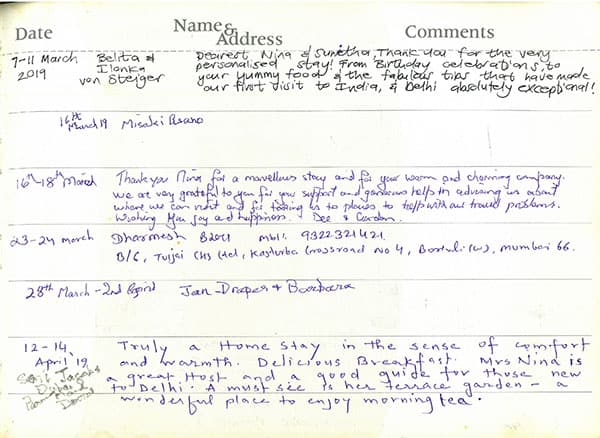 Date Name & Address Comments
7-11 March 2019 Belita & Ilonka von Steiger
Dearest Nina & Sunetha, Thank you for the very
personalised stay! From Birthday celebrations, to
your yummy food & the fabulous tips that have made
our first visit to India, & Delhi absolutely exceptional!
16th March 19 Misaki
16th-18th March
Thank you Nina for a marvellous stay and for your warm and charming company.
We are very grateful to you for your support and generous help in advising us about
where we can visit and for taking us to places to help with our travel problems.
Wishing you joy and happiness. Dee & Gordon.
23-24 march Dharmesh mbl: 9322321421
B/6, Tuljai CHS Ltd, Kasturba Crossroad No 4, Borivli (E), mumbai 66.
28th March - 2nd April Jan Draper & Barbara
12-14 April '19
Truly a Home stay in the sense of comfort
and warmth. Delicious Breakfast. Mrs Nina is
a great Host and a good guide for those new
to Delhi. A must see is her terrace garden - a
wonderful place to enjoy morning tea.